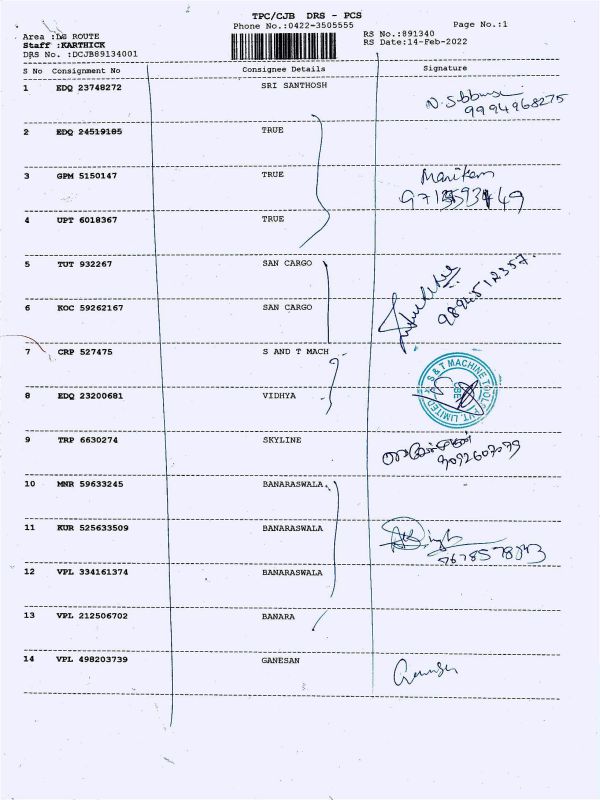 TPC/CJB DRS - PCS
Phone No.:0422-3505555
Page No.:1
Area :LS ROUTE
RS No.:891340
Staff :KARTHICK
RS Date:14-Feb-2022
DRS No. :DCJB89134001
S No Consignment No Consignee Details Signature
1 EDQ 23748272 SRI SANTHOSH
9994968275
2 EDQ 24519185 TRUE
3 GPM 5150147 TRUE
Manikam
4 UPT 6018367 TRUE
5 TUT 932267 SAN CARGO
9894512357.
6 KOC 59262167 SAN CARGO
7 CRP 527475 S AND T MACH
S & T MACHINE TOOLS PVT. LIMITED
8 EDQ 23200681 VIDHYA
9 TRP 6630274 SKYLINE
10 MNR 59633245 BANARASWALA
11 KUR 525633509 BANARASWALA
12 VPL 334161374 BANARASWALA
13 VPL 212506702 BANARA
14 VPL 498203739 GANESAN